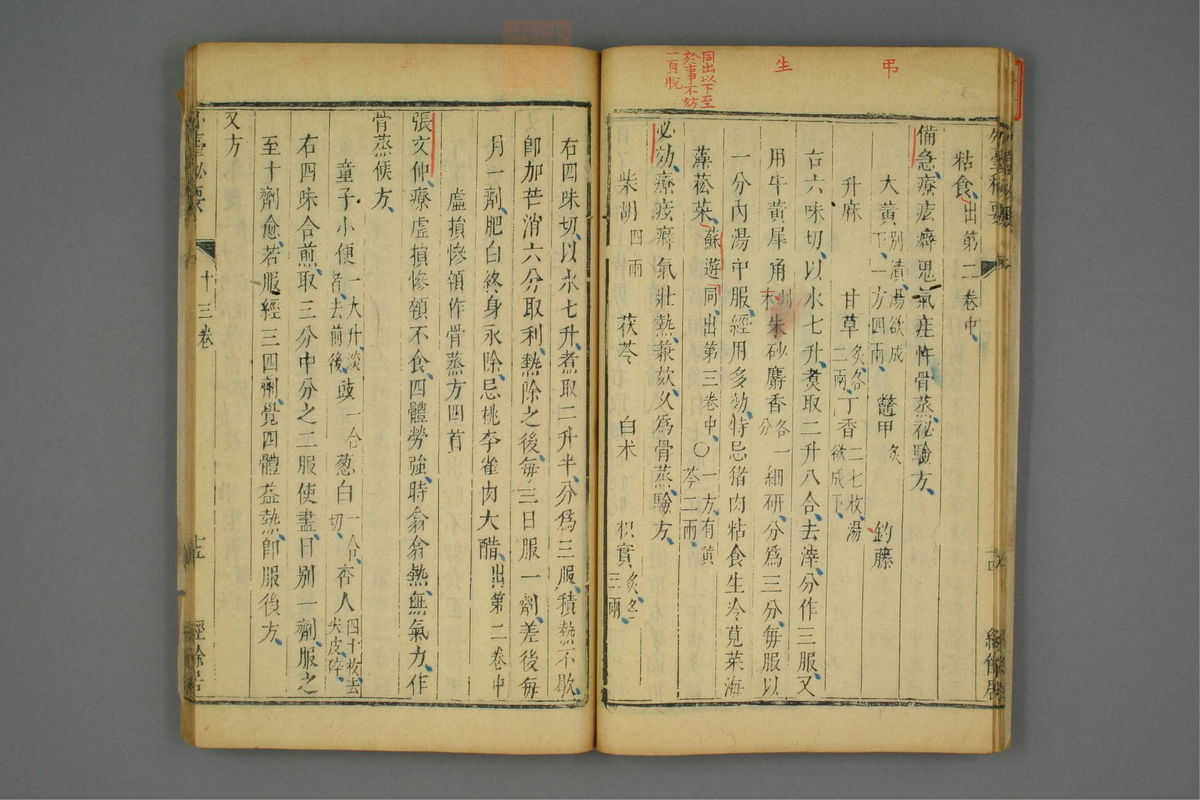 同出以下至
於事不妨
一頁脫
生
弔
粘食出第二卷中
備急療痃癖鬼氣疰忤骨蒸秘驗方
大黃別漬湯欲成下一方四兩 鱉甲炙 鈎藤
升麻 甘草炙各二兩 丁香二七枚湯欲成下
右六味切以水七升煮取二升八合去滓分作三服又
用牛黃犀角末朱砂麝香各一分細研分為三分每服以
一分內湯中服經用多効特忌猪肉粘食生冷莧菜海
藻菘菜蘇遊同出第三卷中○一方有黃芩二兩
必効療痃癖氣壯熱兼欬久為骨蒸驗方
柴胡四兩 茯苓 白术 枳實炙各三兩
右四味切以水七升煮取二升半分為三服積熱不歇
即加芒消六分取利熱除之後每三日服一劑差後每
月一劑肥白終身永除忌桃李雀肉大醋出第二卷中
虛損慘顇作骨蒸方四首
張文仲療虛損慘顇不食四體勞強時翕翕熱無氣力作
骨蒸候方
童子小便一大升淡者去前後 豉一合 葱白一合切 杏人四十枚去尖皮碎
右四味合煎取三分中分之二服使盡日別一劑服之
至十劑愈若服經三四劑覺四體益熱即服後方
又方
十三卷
十五
經餘居